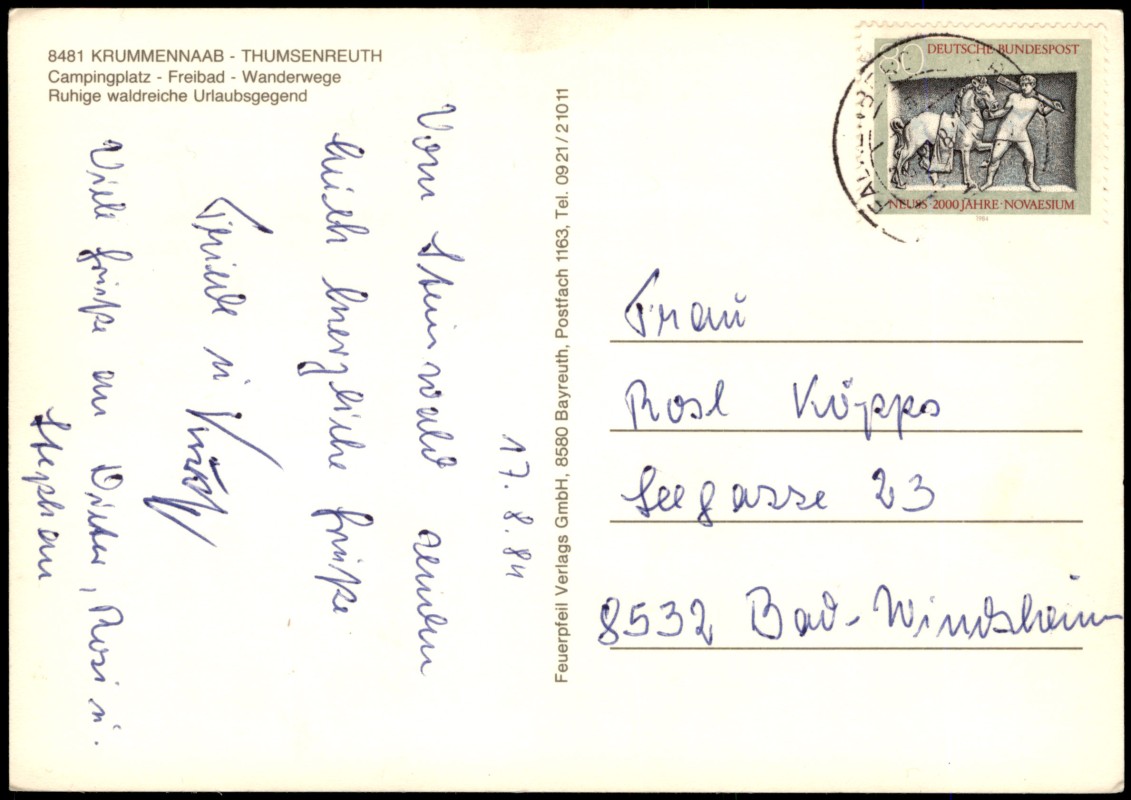 8481 KRUMMENNAAB - THUMSENREUTH
Campingplatz - Freibad - Wanderwege
Ruhige waldreiche Urlaubsgegend
17.8.84
Vom Steinwald senden
Euch herzliche Grüße
Friedl u.
Viele Grüße an Dieter, Rosi u.
Stephan
Feuerpfeil Verlags GmbH, 8580 Bayreuth, Postfach 1163, Tel. 0921/21011
80 DEUTSCHE BUNDESPOST
NEUSS 2000 JAHRE · NOVAESIUM
1984
Frau
Rosl Köpps
Seegasse 23
8532 Bad-Windsheim